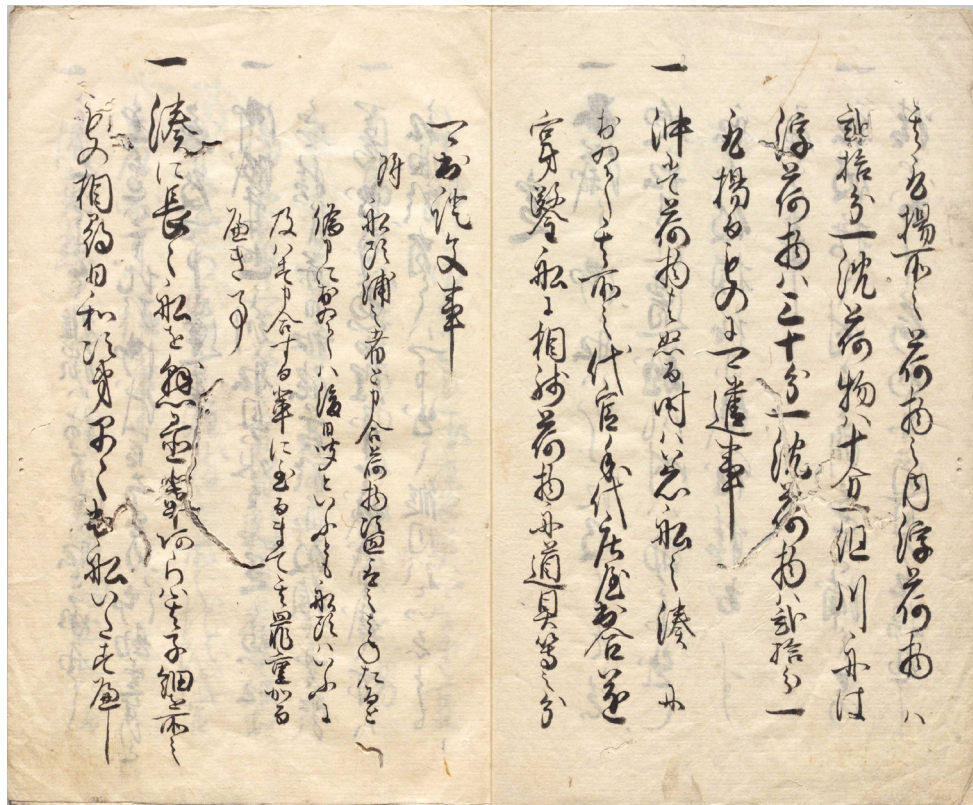 其取揚所之荷物之内浮荷物ハ
弐拾分一沈荷物ハ十分一但川舟は
浮荷物ハ三十分一沈荷物ハ弐拾分一
取揚もの尓可遣事
一 沖尓て荷物はぬる時ハ着船之湊尓
おゐて其所之代官手代庄屋出合遂
穿鑿船尓相残荷物舟道具等之分
可出証文事
附 船頭浦之者と申合荷物盗取之はねたると
偽申尓おゐてハ後日聞といふとも船頭ハいふ尓
及ハす申合する輩に至るまて其罪重かる
へき事
一 湊に長々船を懸置輩あらハ其子細を所之
もの相尋日和次第早々出船いたすへし